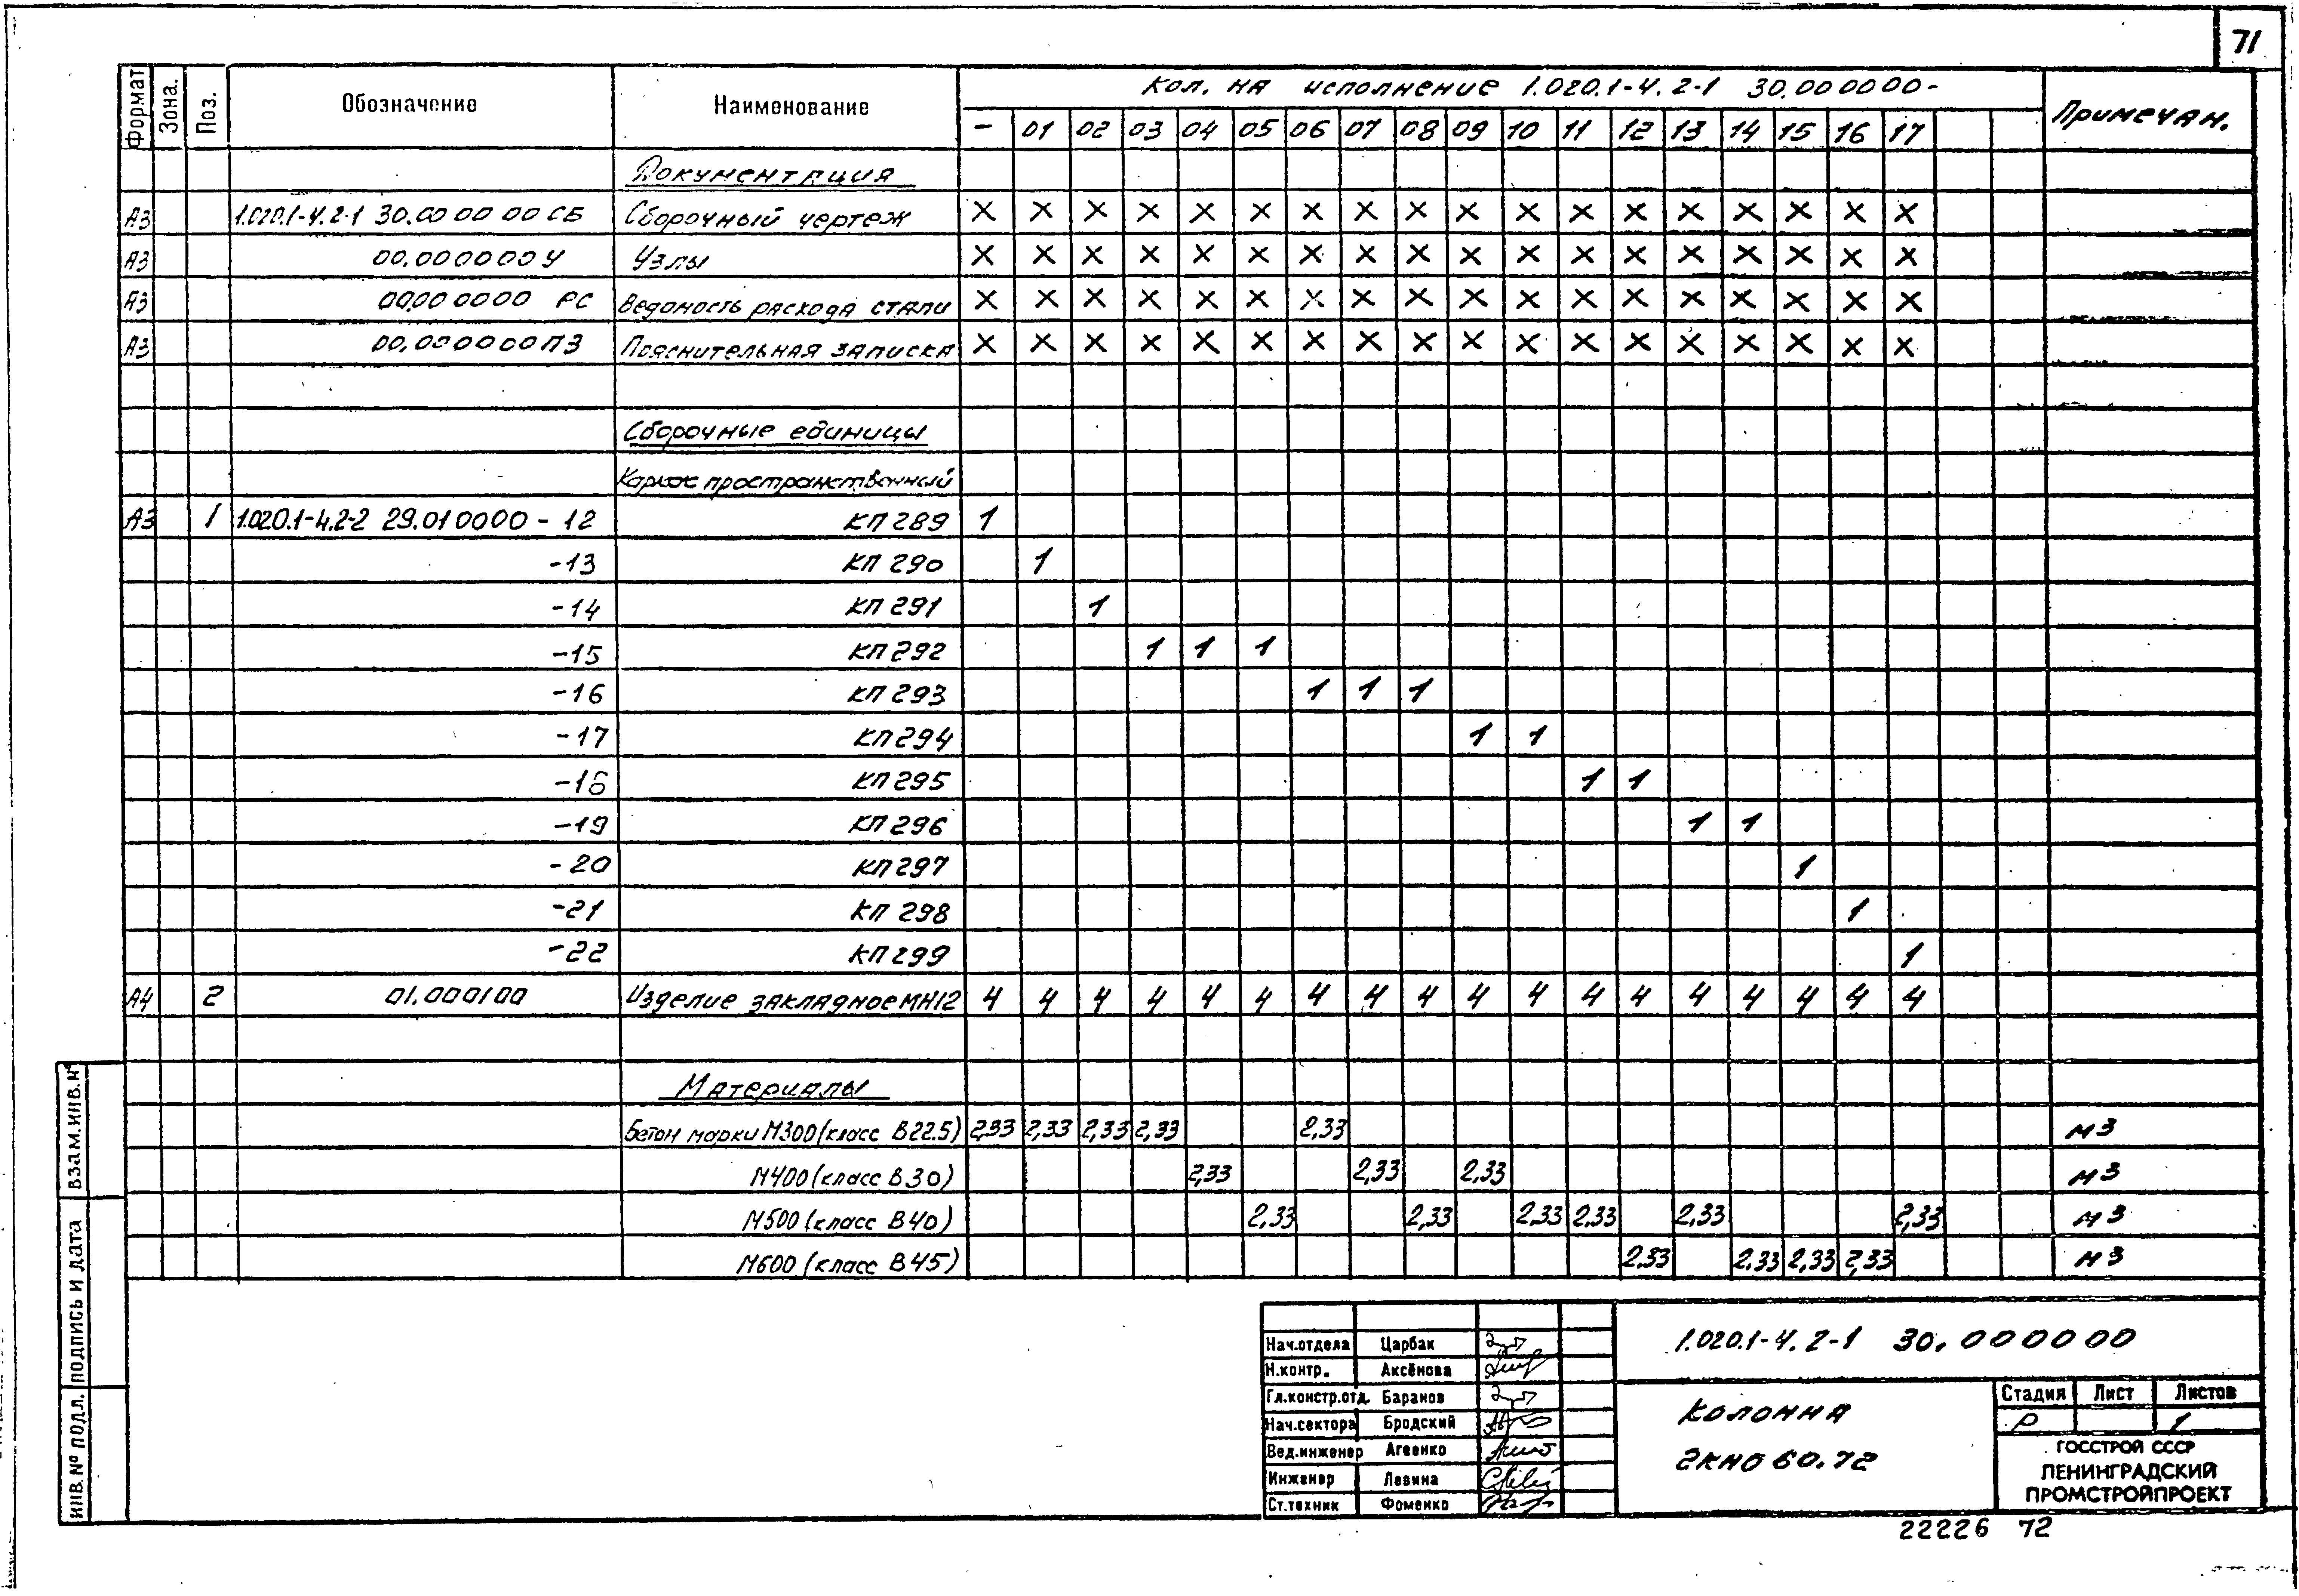 71
Формат Зона. Поз. Обозначение Наименование Кол. на исполнение 1.020.1-4.2-1 30.000000- Примечан.
- 01 02 03 04 05 06 07 08 09 10 11 12 13 14 15 16 17
Документация
А3 1.020.1-4.2-1 30.00 00 00 СБ Сборочный чертеж × × × × × × × × × × × × × × × × × ×
А3 00.000000У Узлы × × × × × × × × × × × × × × × × × ×
А3 00.000000 РС Ведомость расхода стали × × × × × × × × × × × × × × × × × ×
А3 00.000000ПЗ Пояснительная записка × × × × × × × × × × × × × × × × × ×
Сборочные единицы
Каркас пространственный
А3 1 1.020.1-4.2-2 29.010000 - 12 КП 289 1
-13 КП 290 1
-14 КП 291 1
-15 КП 292 1 1 1
-16 КП 293 1 1 1
-17 КП 294 1 1
-18 КП 295 1 1
-19 КП 296 1 1
-20 КП 297 1
-21 КП 298 1
-22 КП 299 1
А4 2 01.000100 Изделие закладное МН12 4 4 4 4 4 4 4 4 4 4 4 4 4 4 4 4 4 4
Материалы
Бетон марки М300 (класс В22.5) 2,33 2,33 2,33 2,33 2,33 м3
М400 (класс В30) 2,33 2,33 2,33 м3
М500 (класс В40) 2,33 2,33 2,33 2,33 2,33 2,33 м3
М600 (класс В45) 2,33 2,33 2,33 2,33 м3
ВЗАМ.ИНВ.№
ПОДПИСЬ И ДАТА
ИНВ.№ ПОДЛ.
Нач.отдела Царбак
Н.контр. Аксёнова
Гл.констр.отд. Баранов
Нач.сектора Бродский
Вед.инженер Агеенко
Инженер Левина
Ст.техник Фоменко
1.020.1-4.2-1 30.000000
Колонна
2КНО 60.72
Стадия Лист Листов
Р 1
ГОССТРОЙ СССР
ЛЕНИНГРАДСКИЙ
ПРОМСТРОЙПРОЕКТ
22226 72